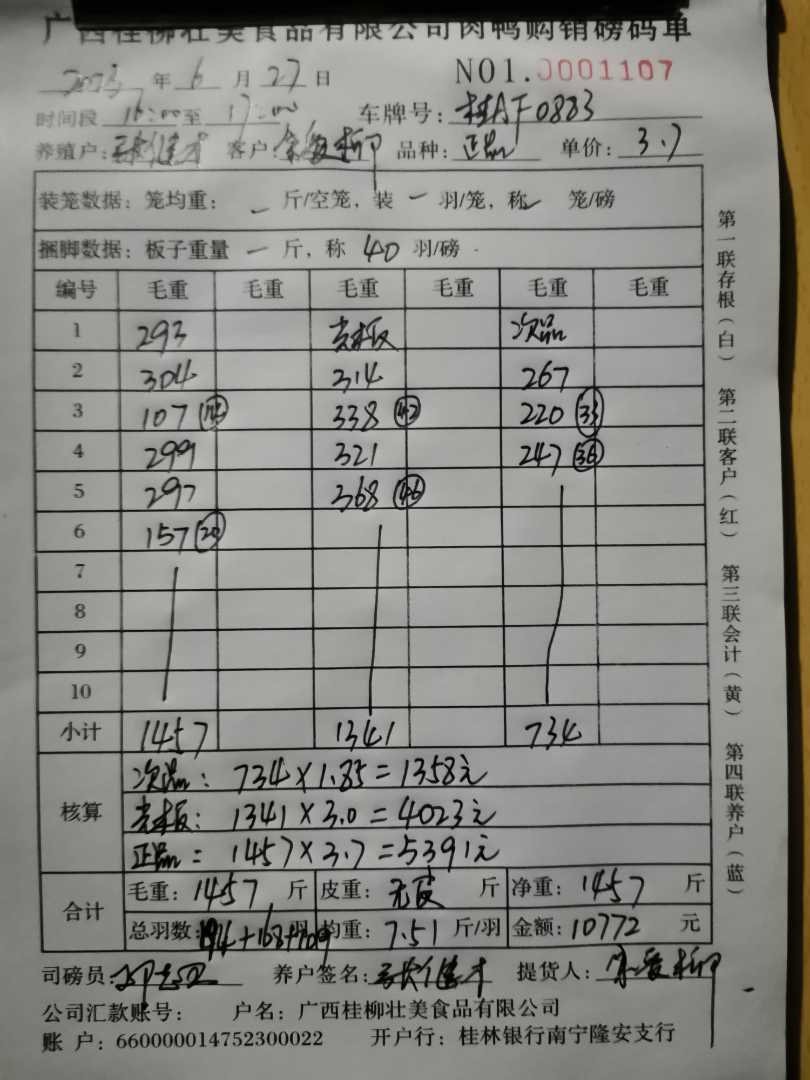 广西桂柳壮美食品有限公司肉鸭购销磅码单
2023年6月27日 NO1.0001107
时间段16:00至17:00 车牌号:桂AF0883
养殖户: 客户:爱柳 品种:正品 单价:3.7
装笼数据:笼均重:一斤/空笼,装一羽/笼,称 笼/磅
捆脚数据:板子重量一斤,称40羽/磅
编号 毛重 毛重 毛重 毛重 毛重 毛重
1 293 板 次品
2 304 314 267
3 107 338 42 220 33
4 299 321 247 36
5 297 368 46
6 157 20
7
8
9
10
小计 1457 1341 734
核算 次品:734×1.85=1358元
板:1341×3.0=4023元
正品=1457×3.7=5391元
合计 毛重:1457斤 皮重:无皮斤 净重:1457斤
总羽数:194+168+109羽 均重:7.51斤/羽 金额:10772元
司磅员: 养户签名: 提货人:爱柳
公司汇款账号: 户名:广西桂柳壮美食品有限公司
账 户:660000014752300022 开户行:桂林银行南宁隆安支行
第一联存根(白) 第二联客户(红) 第三联会计(黄) 第四联养户(蓝)